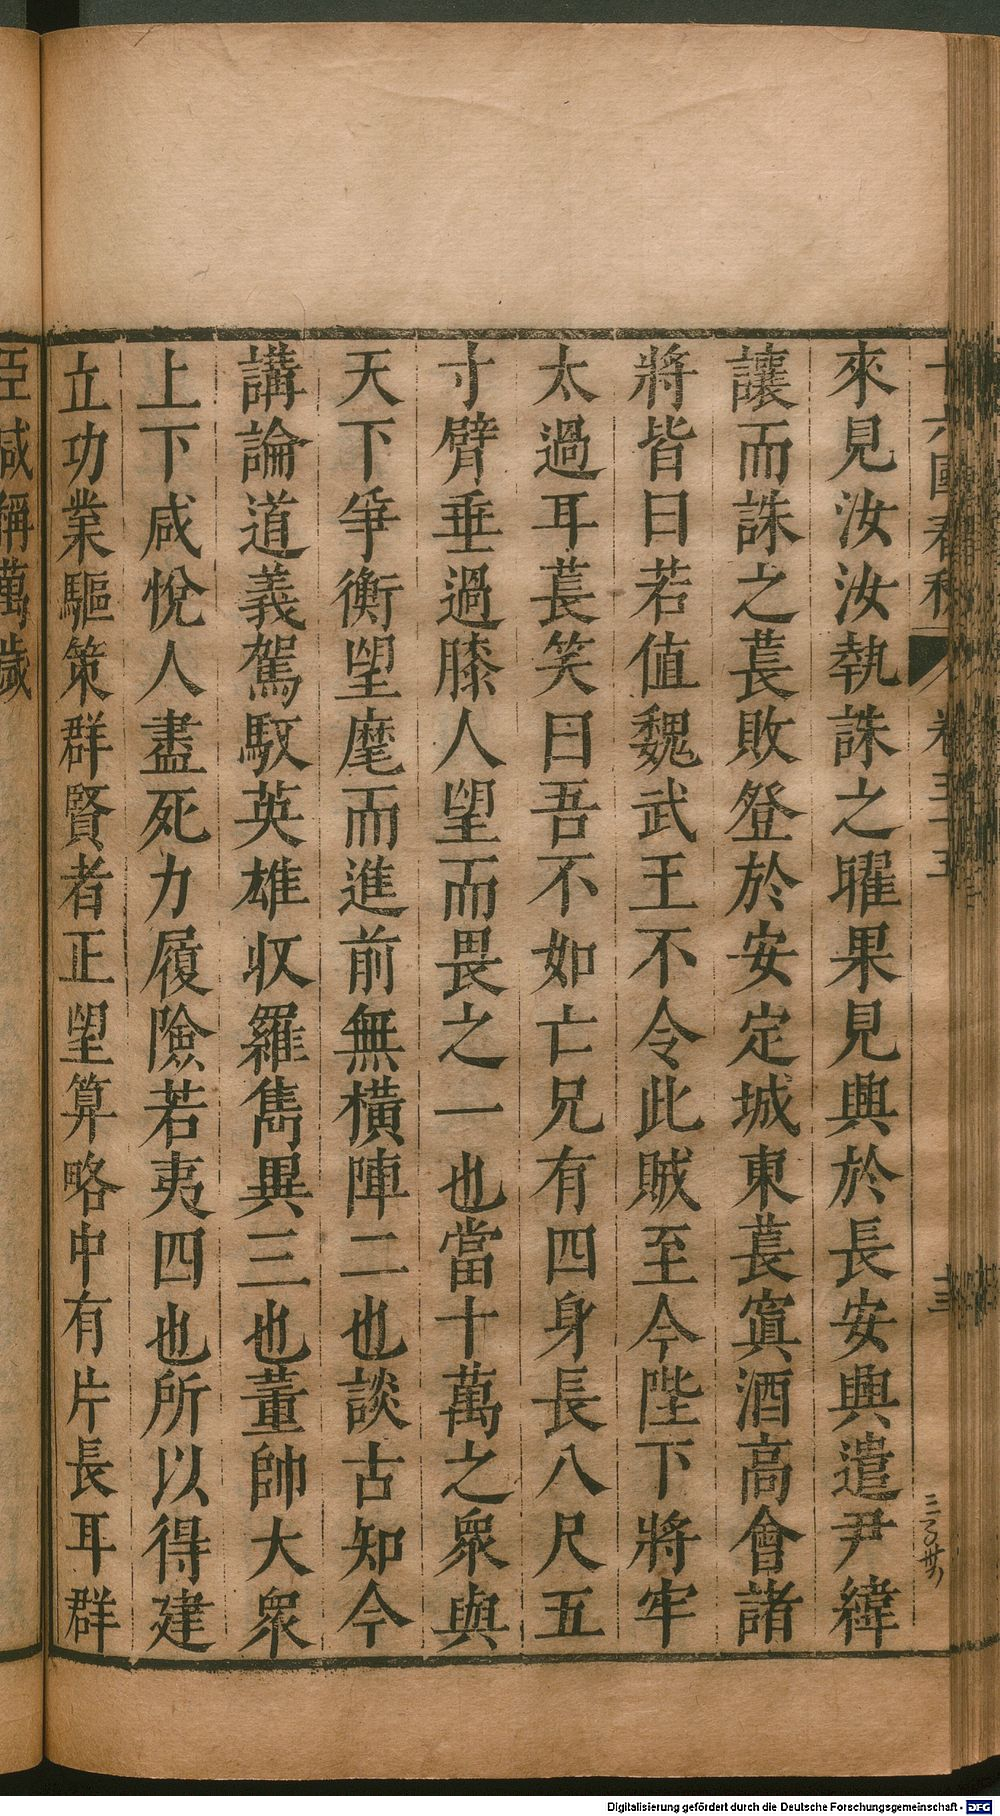 十六國春秋 卷五十五
來見汝汝執誅之曜果見興於長安興遣尹緯
讓而誅之萇敗登於安定城東萇寘酒高會諸
將皆曰若值魏武王不令此賊至今陛下將牢
太過耳萇笑曰吾不如亡兄有四身長八尺五
寸臂垂過膝人望而畏之一也當十萬之衆與
天下爭衡望麾而進前無橫陣二也談古知今
講論道義駕馭英雄収羅雋異三也董帥大衆
上下咸悅人盡死力履險若夷四也所以得建
立功業驅策群賢者正望算略中有片長耳群
臣咸稱萬歲
Digitalisierung gefördert durch die Deutsche Forschungsgemeinschaft - DFG